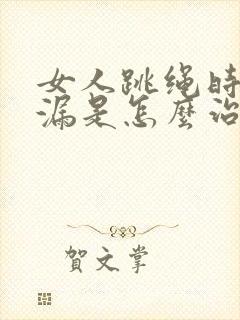 女人跳绳时
漏是怎麼治
賀文掌